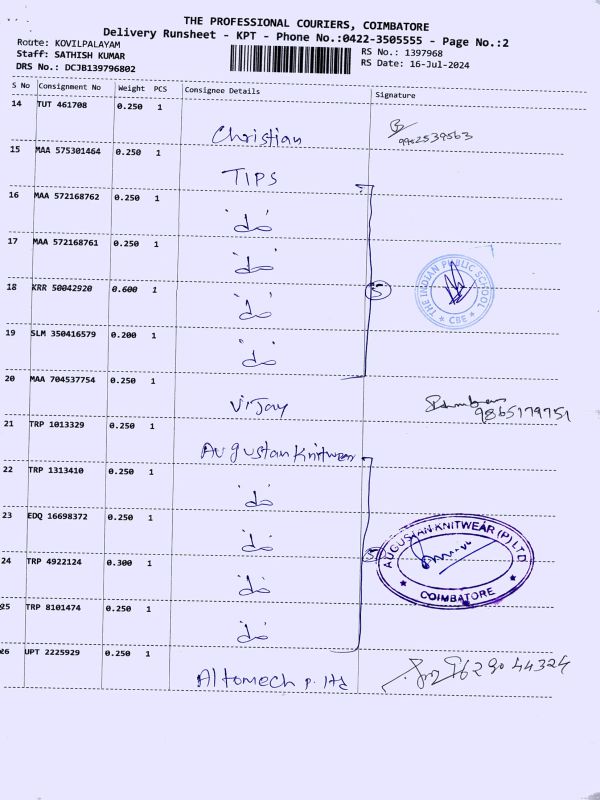 THE PROFESSIONAL COURIERS, COIMBATORE
Delivery Runsheet - KPT - Phone No.:0422-3505555 - Page No.:2
Route: KOVILPALAYAM
Staff: SATHISH KUMAR
DRS No.: DCJB139796802
RS No.: 1397968
RS Date: 16-Jul-2024
S No Consignment No Weight PCS Consignee Details Signature
14 TUT 461708 0.250 1 Christian 9952539563
15 MAA 575301464 0.250 1 TIPS
16 MAA 572168762 0.250 1 "do"
17 MAA 572168761 0.250 1 "do"
18 KRR 50042920 0.600 1 "do" 5
THE INDIAN PUBLIC SCHOOL
CBE
19 SLM 350416579 0.200 1 "do"
20 MAA 704537754 0.250 1 Vijay 9865179751
21 TRP 1013329 0.250 1 Augustan Knitwear
22 TRP 1313410 0.250 1 "do"
23 EDQ 16698372 0.250 1 "do"
24 TRP 4922124 0.300 1 "do" 5
AUGUSTAN KNITWEAR (P) LTD
COIMBATORE
25 TRP 8101474 0.250 1 "do"
26 UPT 2225929 0.250 1 Altomech p. ltd 9629044324